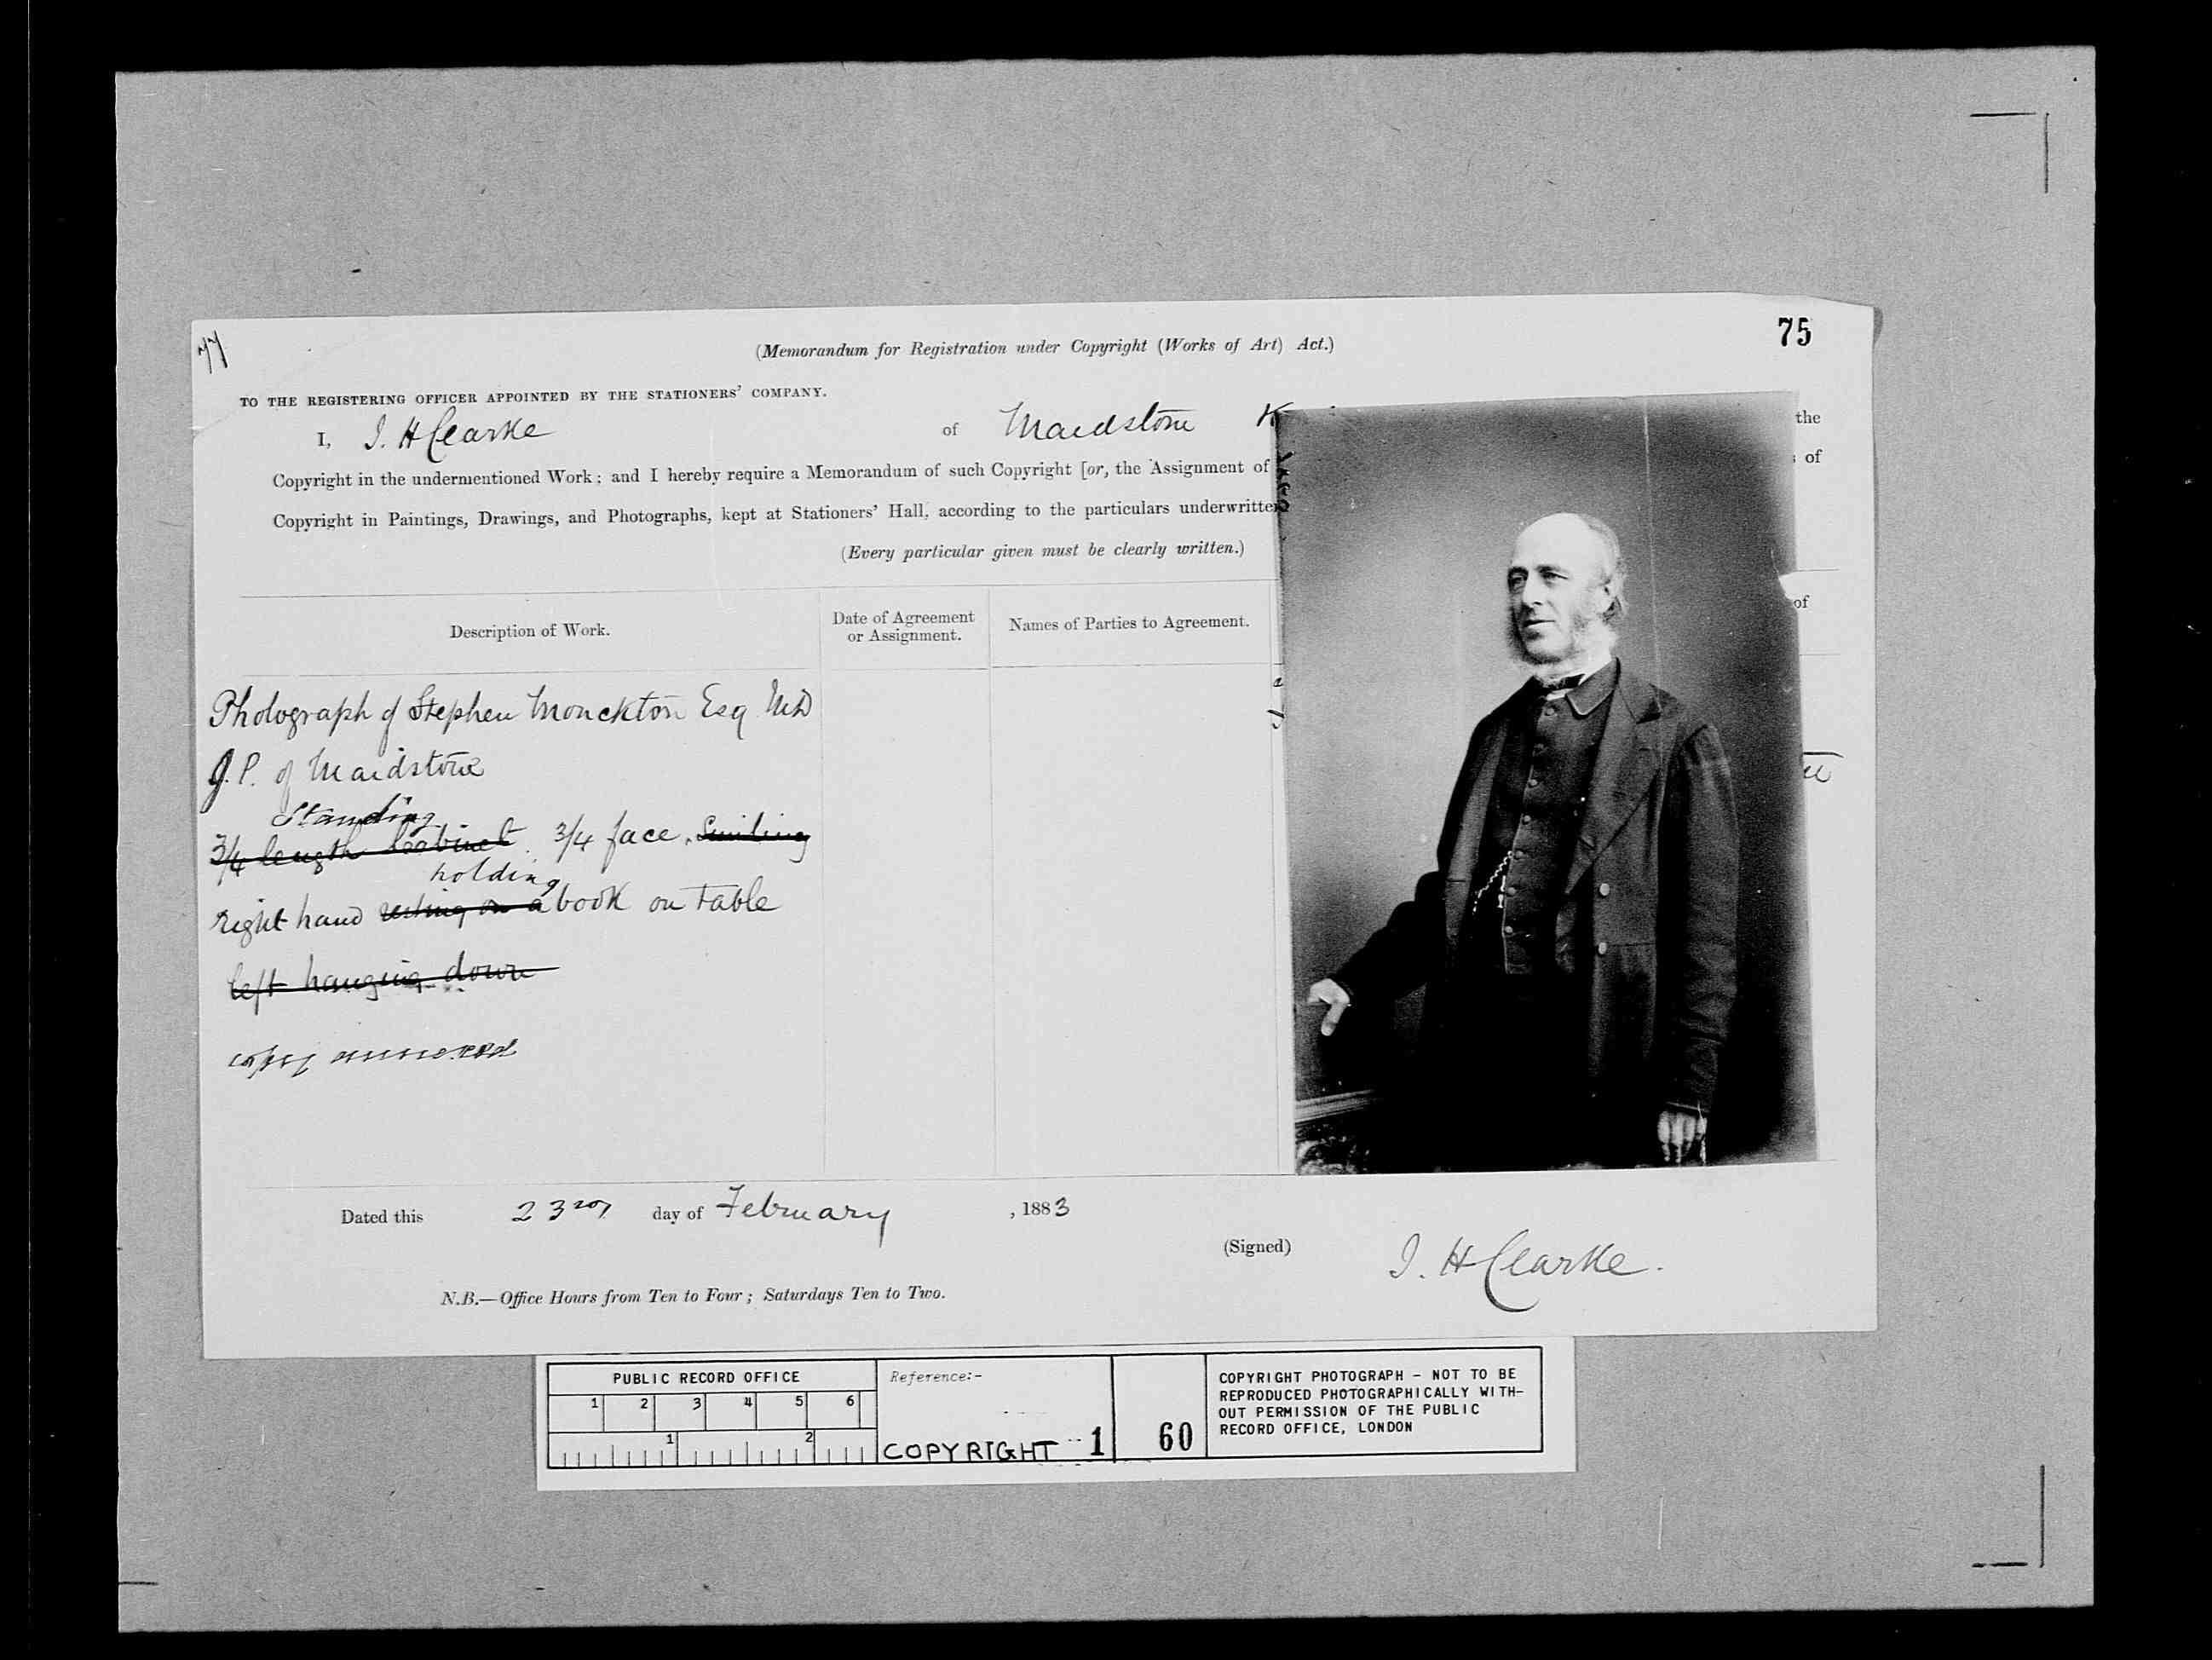 77
75
(Memorandum for Registration under Copyright (Works of Art) Act.)
TO THE REGISTERING OFFICER APPOINTED BY THE STATIONERS' COMPANY.
I, J. H Clarke of Maidstone K the
Copyright in the undermentioned Work; and I hereby require a Memorandum of such Copyright [or, the Assignment of of
Copyright in Paintings, Drawings, and Photographs, kept at Stationers' Hall, according to the particulars underwritten
(Every particular given must be clearly written.)
Description of Work.
Date of Agreement
or Assignment.
Names of Parties to Agreement.
of
Photograph of Stephen Monckton Esq MD
J.P. of Maidstone
Standing
3/4 length Cabinet. 3/4 face. Smiling
holding
right hand resting on a book on table
left hanging down
copy annexed
Dated this 23rd day of February, 1883
(Signed) J. H Clarke.
N.B.—Office Hours from Ten to Four; Saturdays Ten to Two.
PUBLIC RECORD OFFICE
1 2 3 4 5 6
1 2
Reference:-
COPYRIGHT 1
60
COPYRIGHT PHOTOGRAPH - NOT TO BE
REPRODUCED PHOTOGRAPHICALLY WITH-
OUT PERMISSION OF THE PUBLIC
RECORD OFFICE, LONDON